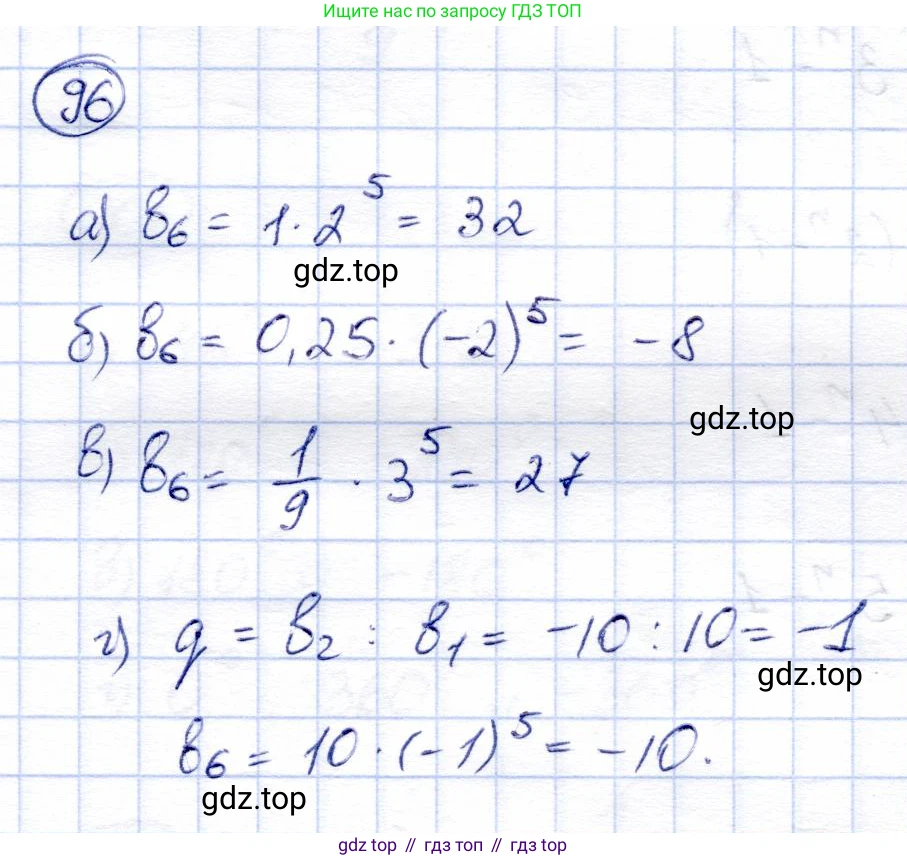 Ищите нас по запросу ГДЗ ТОП
96
а) b₆ = 1 · 2⁵ = 32
gdz.top
б) b₆ = 0,25 · (-2)⁵ = -8
gdz.top
в) b₆ = 1/9 · 3⁵ = 27
г) q = b₂ : b₁ = -10 : 10 = -1
gdz.top
b₆ = 10 · (-1)⁵ = -10.
gdz.top
gdz.top // гдз топ // gdz.top // гдз.top